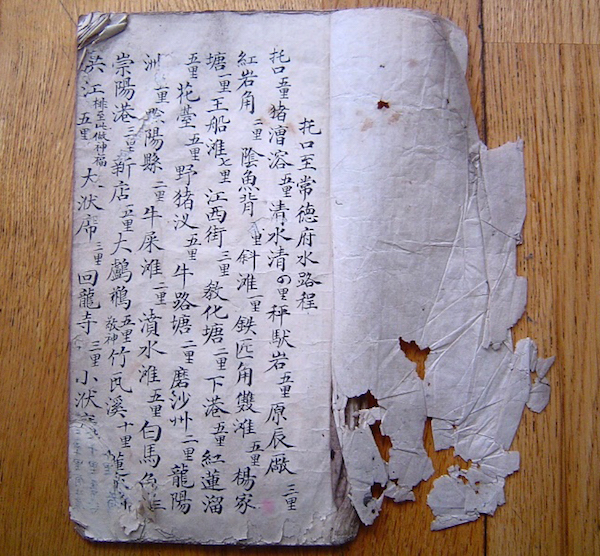 托口至常德府水路程
托口五里猪漕溶五里清水清の里秤馱岩五里原辰廠三里
紅岩角二里陰魚背里斜灘一里鉄匹角雙灘五里楊家
塘一里王船灘七里江西街三里教化塘二里下港五里紅蓮溜
五里花堂五里野猪汊五里牛路塘二里磨沙州二里龍陽
洲里黔陽縣二里牛屎灘二里瀆水滩五里白馬
崇陽港三里新店五里大鸕鶿五里敬神竹瓦溪十里
洪江排至此做神福五里大洑席三里回龍寺三里小洑